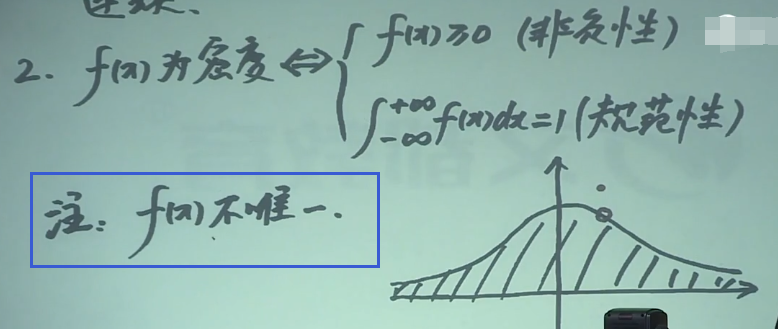 连续、
2. f(x)为密度 ⇔ { f(x)≥0 (非负性)
∫_{-∞}^{+∞} f(x)dx=1 (规范性)
注: f(x)不唯一.